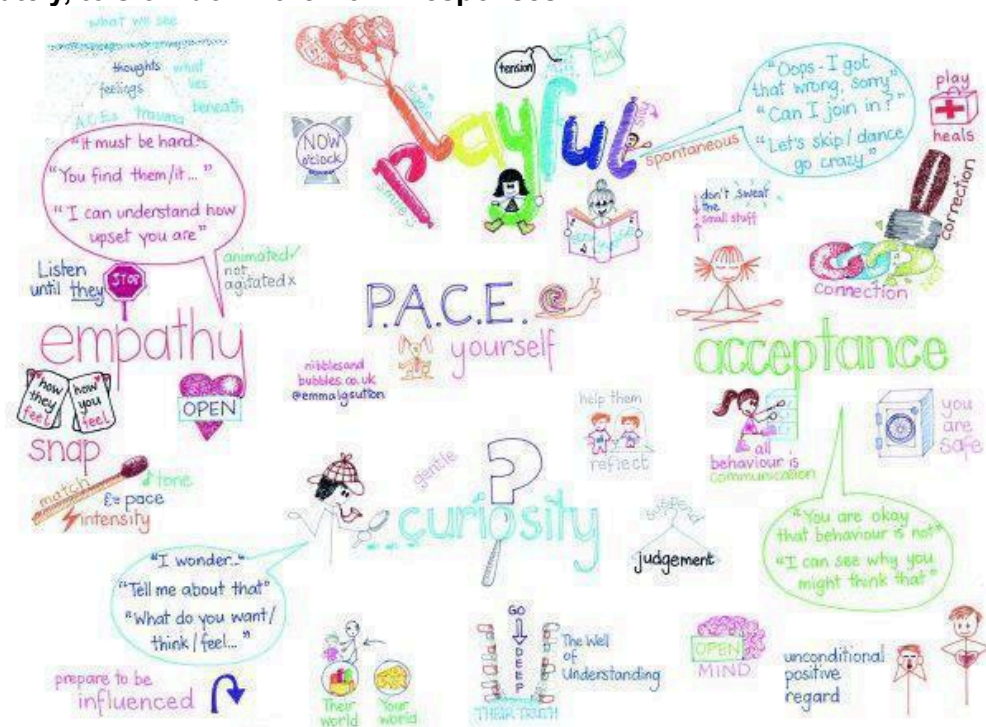 what we see
thoughts
feelings
what
lies
beneath
A.C.Es trauma
"It must be hard."
"You find them/it..."
"I can understand how
upset you are"
Listen
until they
STOP
animated ✓
not
agitated x
empathy
how
they
feel
how
you
feel
OPEN
snap
match
tone
£= pace
intensity
NOW
o'clock
smile
tension
playful
spontaneous
"Oops - I got
that wrong, sorry"
"Can I join in?"
"Let's skip/dance
go crazy"
play
heals
don't sweat
the
small stuff
connection
connection
P.A.C.E.
yourself
nibblesand
bubbles.co.uk
@emmalgsutton
acceptance
all
behaviour is
communication
you
are
safe
"You are okay
that behaviour is not"
"I can see why you
might think that"
help them
reflect
gentle
?
...curiosity
suspend
judgement
"I wonder..."
"Tell me about that"
"What do you want/
think/feel..."
prepare to be
influenced
Their
world
Your
world
GO
DEEP
The Well
of
Understanding
THEIR TRUTH
OPEN
MIND
unconditional
positive
regard